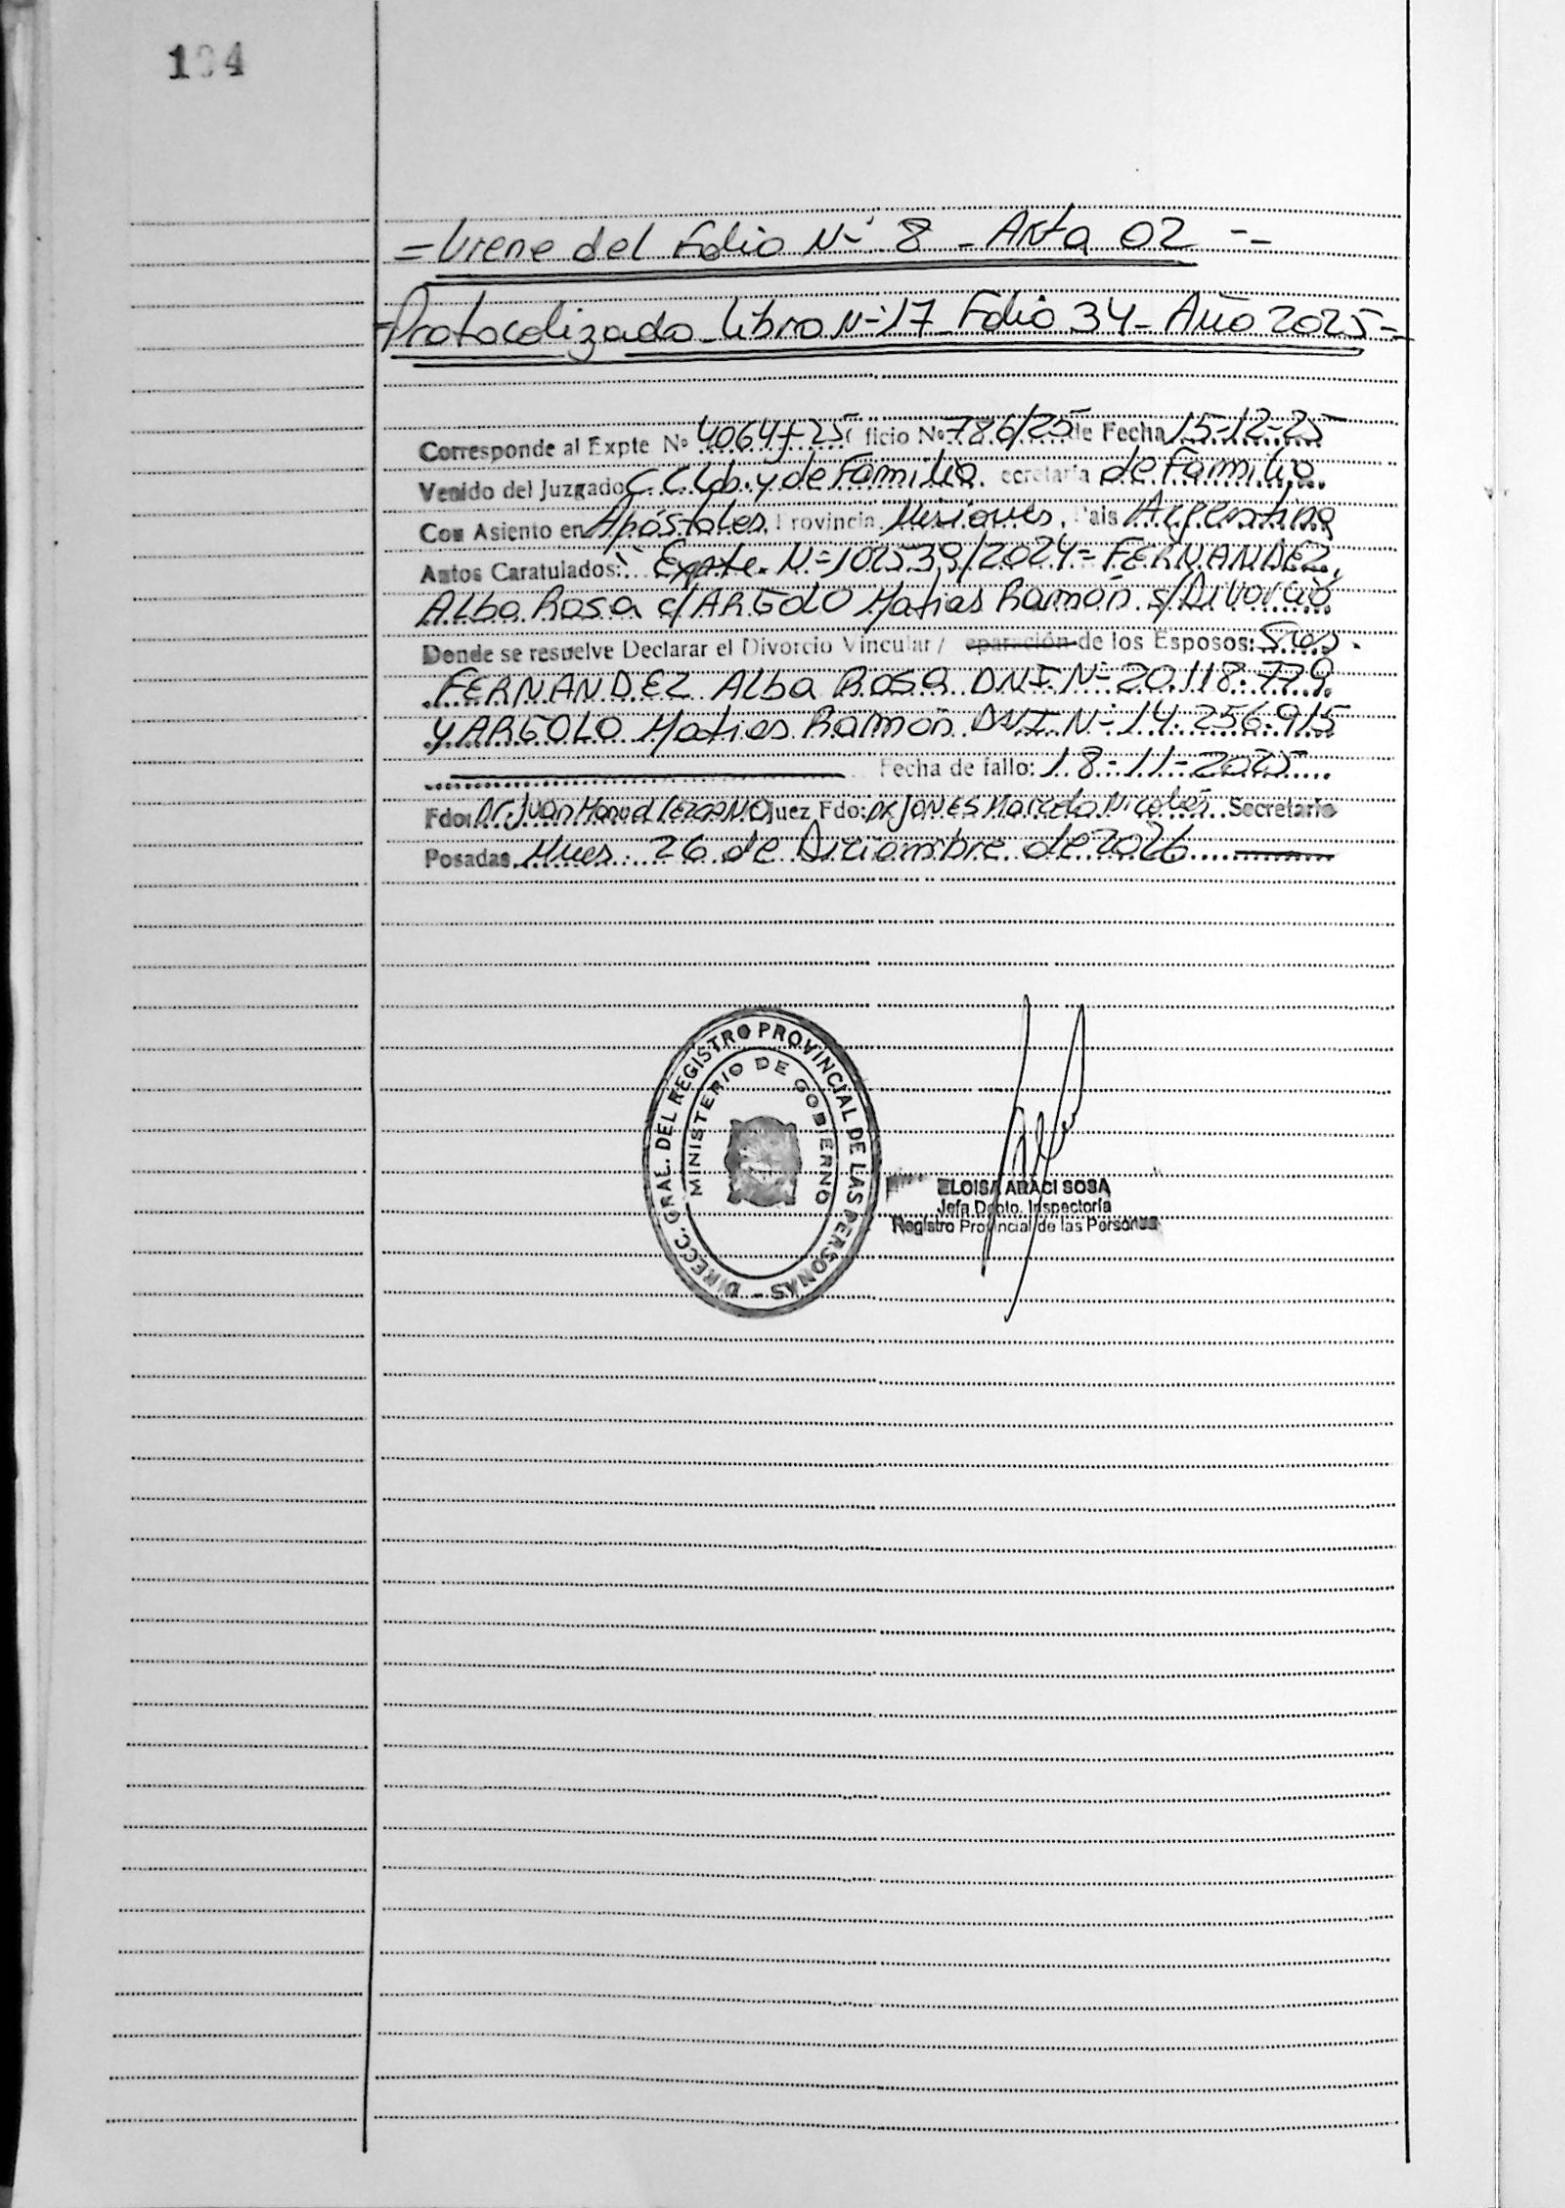 = Viene del Folio N-° 8 - Acta 02 --
=Protocolizado Libro N-°17 Folio 34 - Año 2025=
Corresponde al Expte Nº 4064f-25 ficio Nº 786/25 de Fecha 15-12-25
Venido del Juzgado C.C. Lab. y de Familia. ecretaria de Familia.
Con Asiento en Apóstoles, Provincia Misiones, Pais Argentina
Autos Caratulados: Expte. N-° 102539/2024= FERNANDEZ,
Alba Rosa c/ ARGOLO Matias Ramón s/Divorcio
Donde se resuelve Declarar el Divorcio Vincular / eparación de los Esposos: Sres.
FERNANDEZ Alba Rosa DNI N-° 20.118.779
y ARGOLO Matias Ramón DNI N-° 14.256.915
Fecha de fallo: 18-11-2025
Fdo: Dr. Juan Manuel LEZCANO Juez Fdo: Dr JONES Marcelo Nicolás Secretario
Posadas, Mnes. 26 de Diciembre de 2026
DIRECC. GRAL. DEL REGISTRO PROVINCIAL DE LAS PERSONAS -
MINISTERIO DE GOBIERNO
ELOISA ARACI SOSA
Jefa Dpto. Inspectoría
Registro Provincial de las Personas